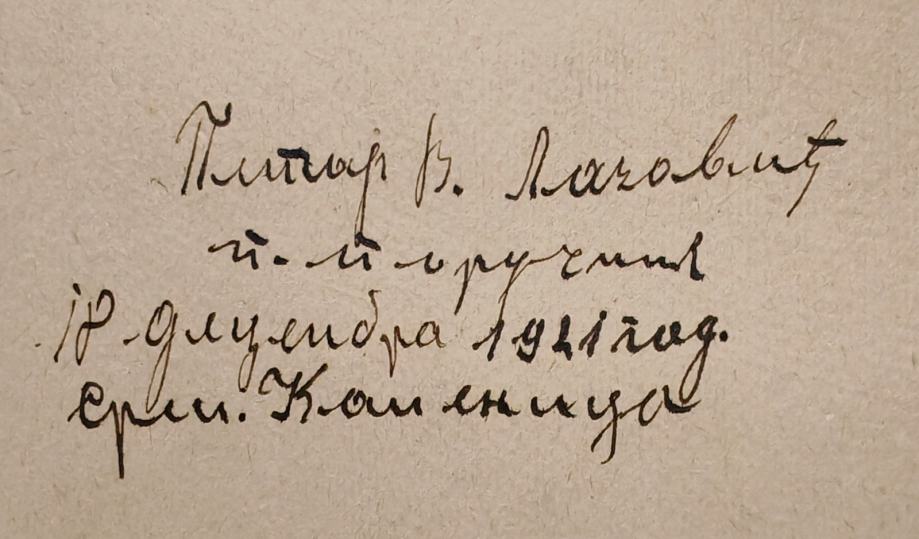 Петар В. Лаговић
п. поручник
18 децембра 1921 год.
Срем. Каменица